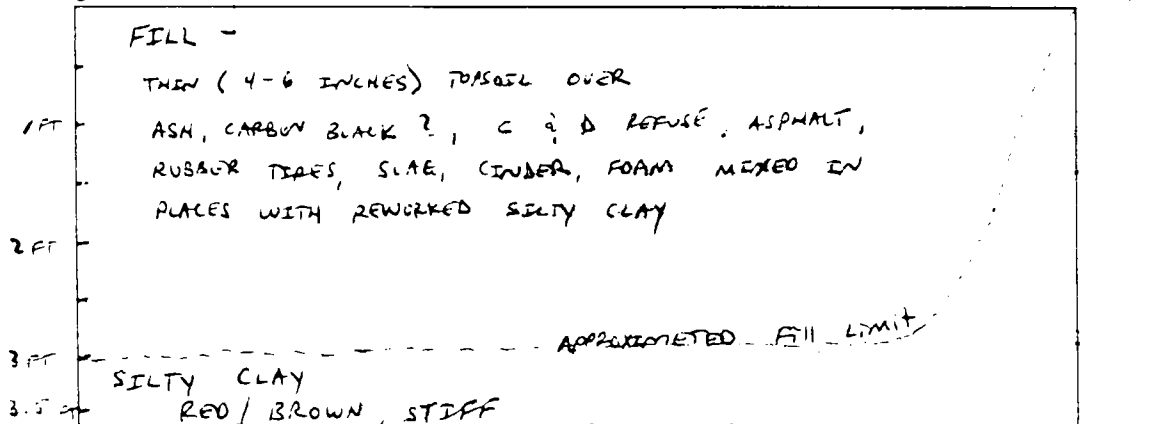 FILL -
THIN (4-6 INCHES) TOPSOIL OVER
1 FT
ASH, CARBON BLACK ?, C & D REFUSE, ASPHALT,
RUBBER TIRES, SLAG, CINDER, FOAM MIXED IN
PLACES WITH REWORKED SILTY CLAY
2 FT
APPROXIMETED Fill Limit
3 FT
SILTY CLAY
3.5 FT
RED / BROWN, STIFF